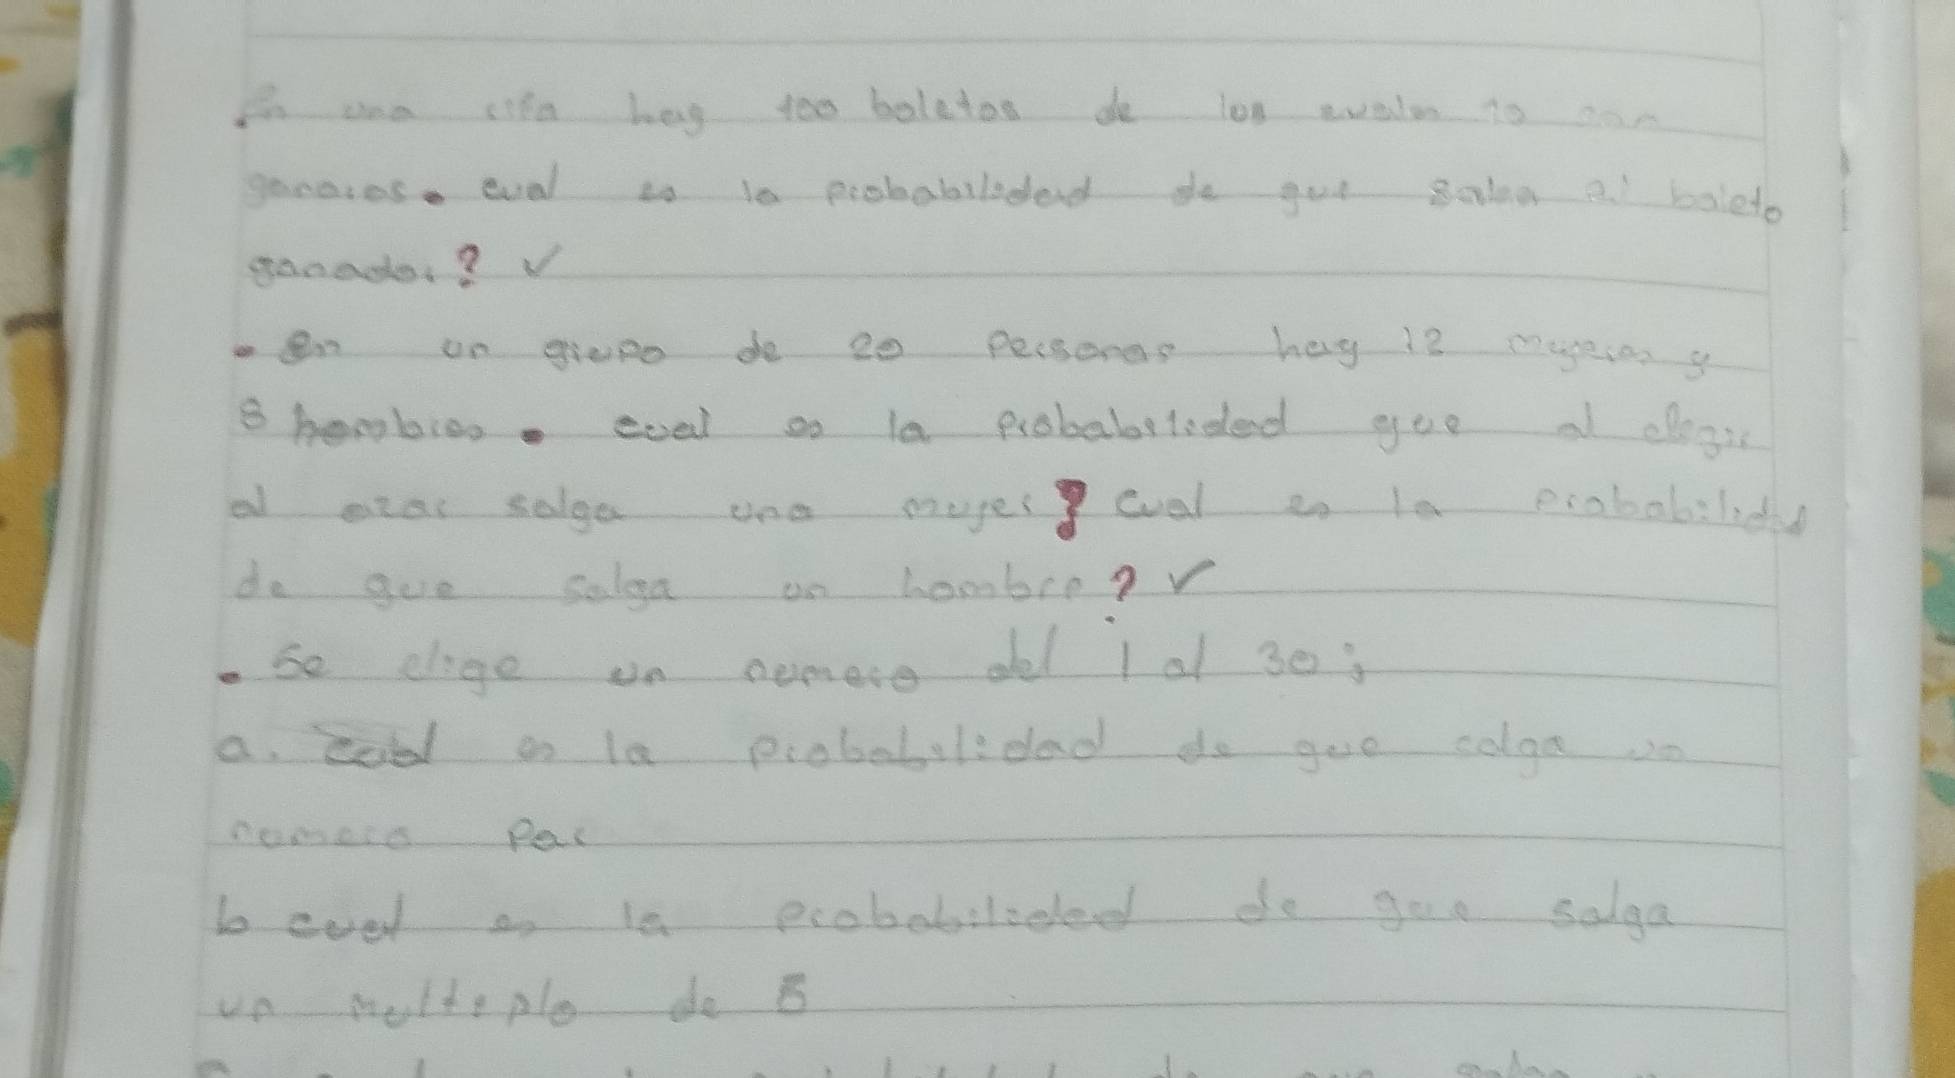 En una rifa hay 100 boletos de los cuales 10 son
ganares. cual es la probabilidad de que salga el boleto
ganador? ✓
• en un grupo de 20 personas hay 12 mugeres y
8 hombres • cual es la probabilidad que al elegir
al azar salga una muger? cual es la probabilidad
de que salga un hombre? ✓
• Se elige un numero del 1 al 30;
a. cual es la probabilidad de que salga un
numero Par
b cual es la probabilidad de que salga
un multiplo de 5